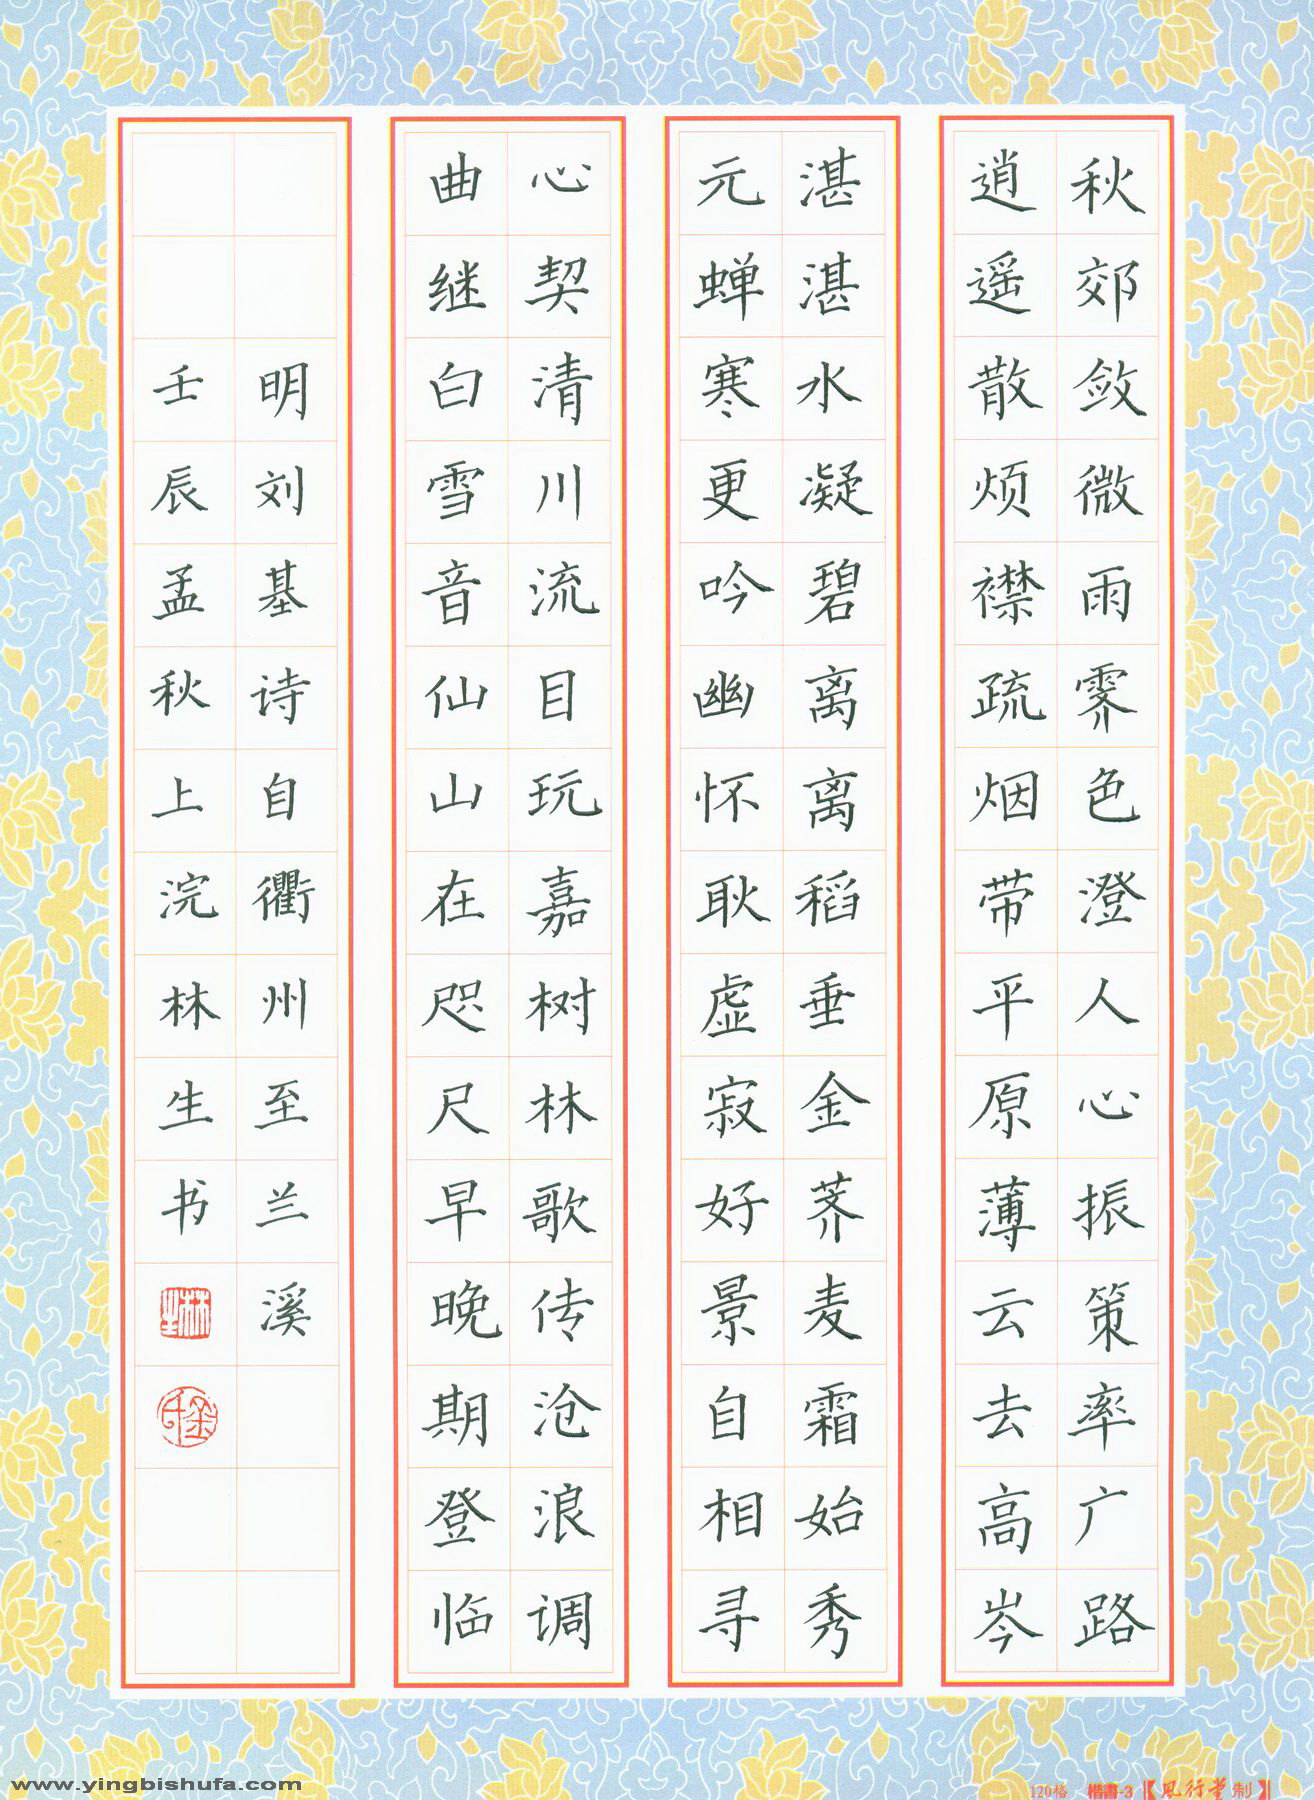 秋郊敛微雨霁色澄人心振策率广路
逍遥散烦襟疏烟带平原薄云去高岑
湛湛水凝碧离离稻垂金荞麦霜始秀
元蝉寒更吟幽怀耿虚寂好景自相寻
心契清川流目玩嘉树林歌传沧浪调
曲继白雪音仙山在咫尺早晚期登临
明刘基诗自衢州至兰溪
壬辰孟秋上浣林生书
www.yingbishufa.com
120格 楷書-3【風行堂制】